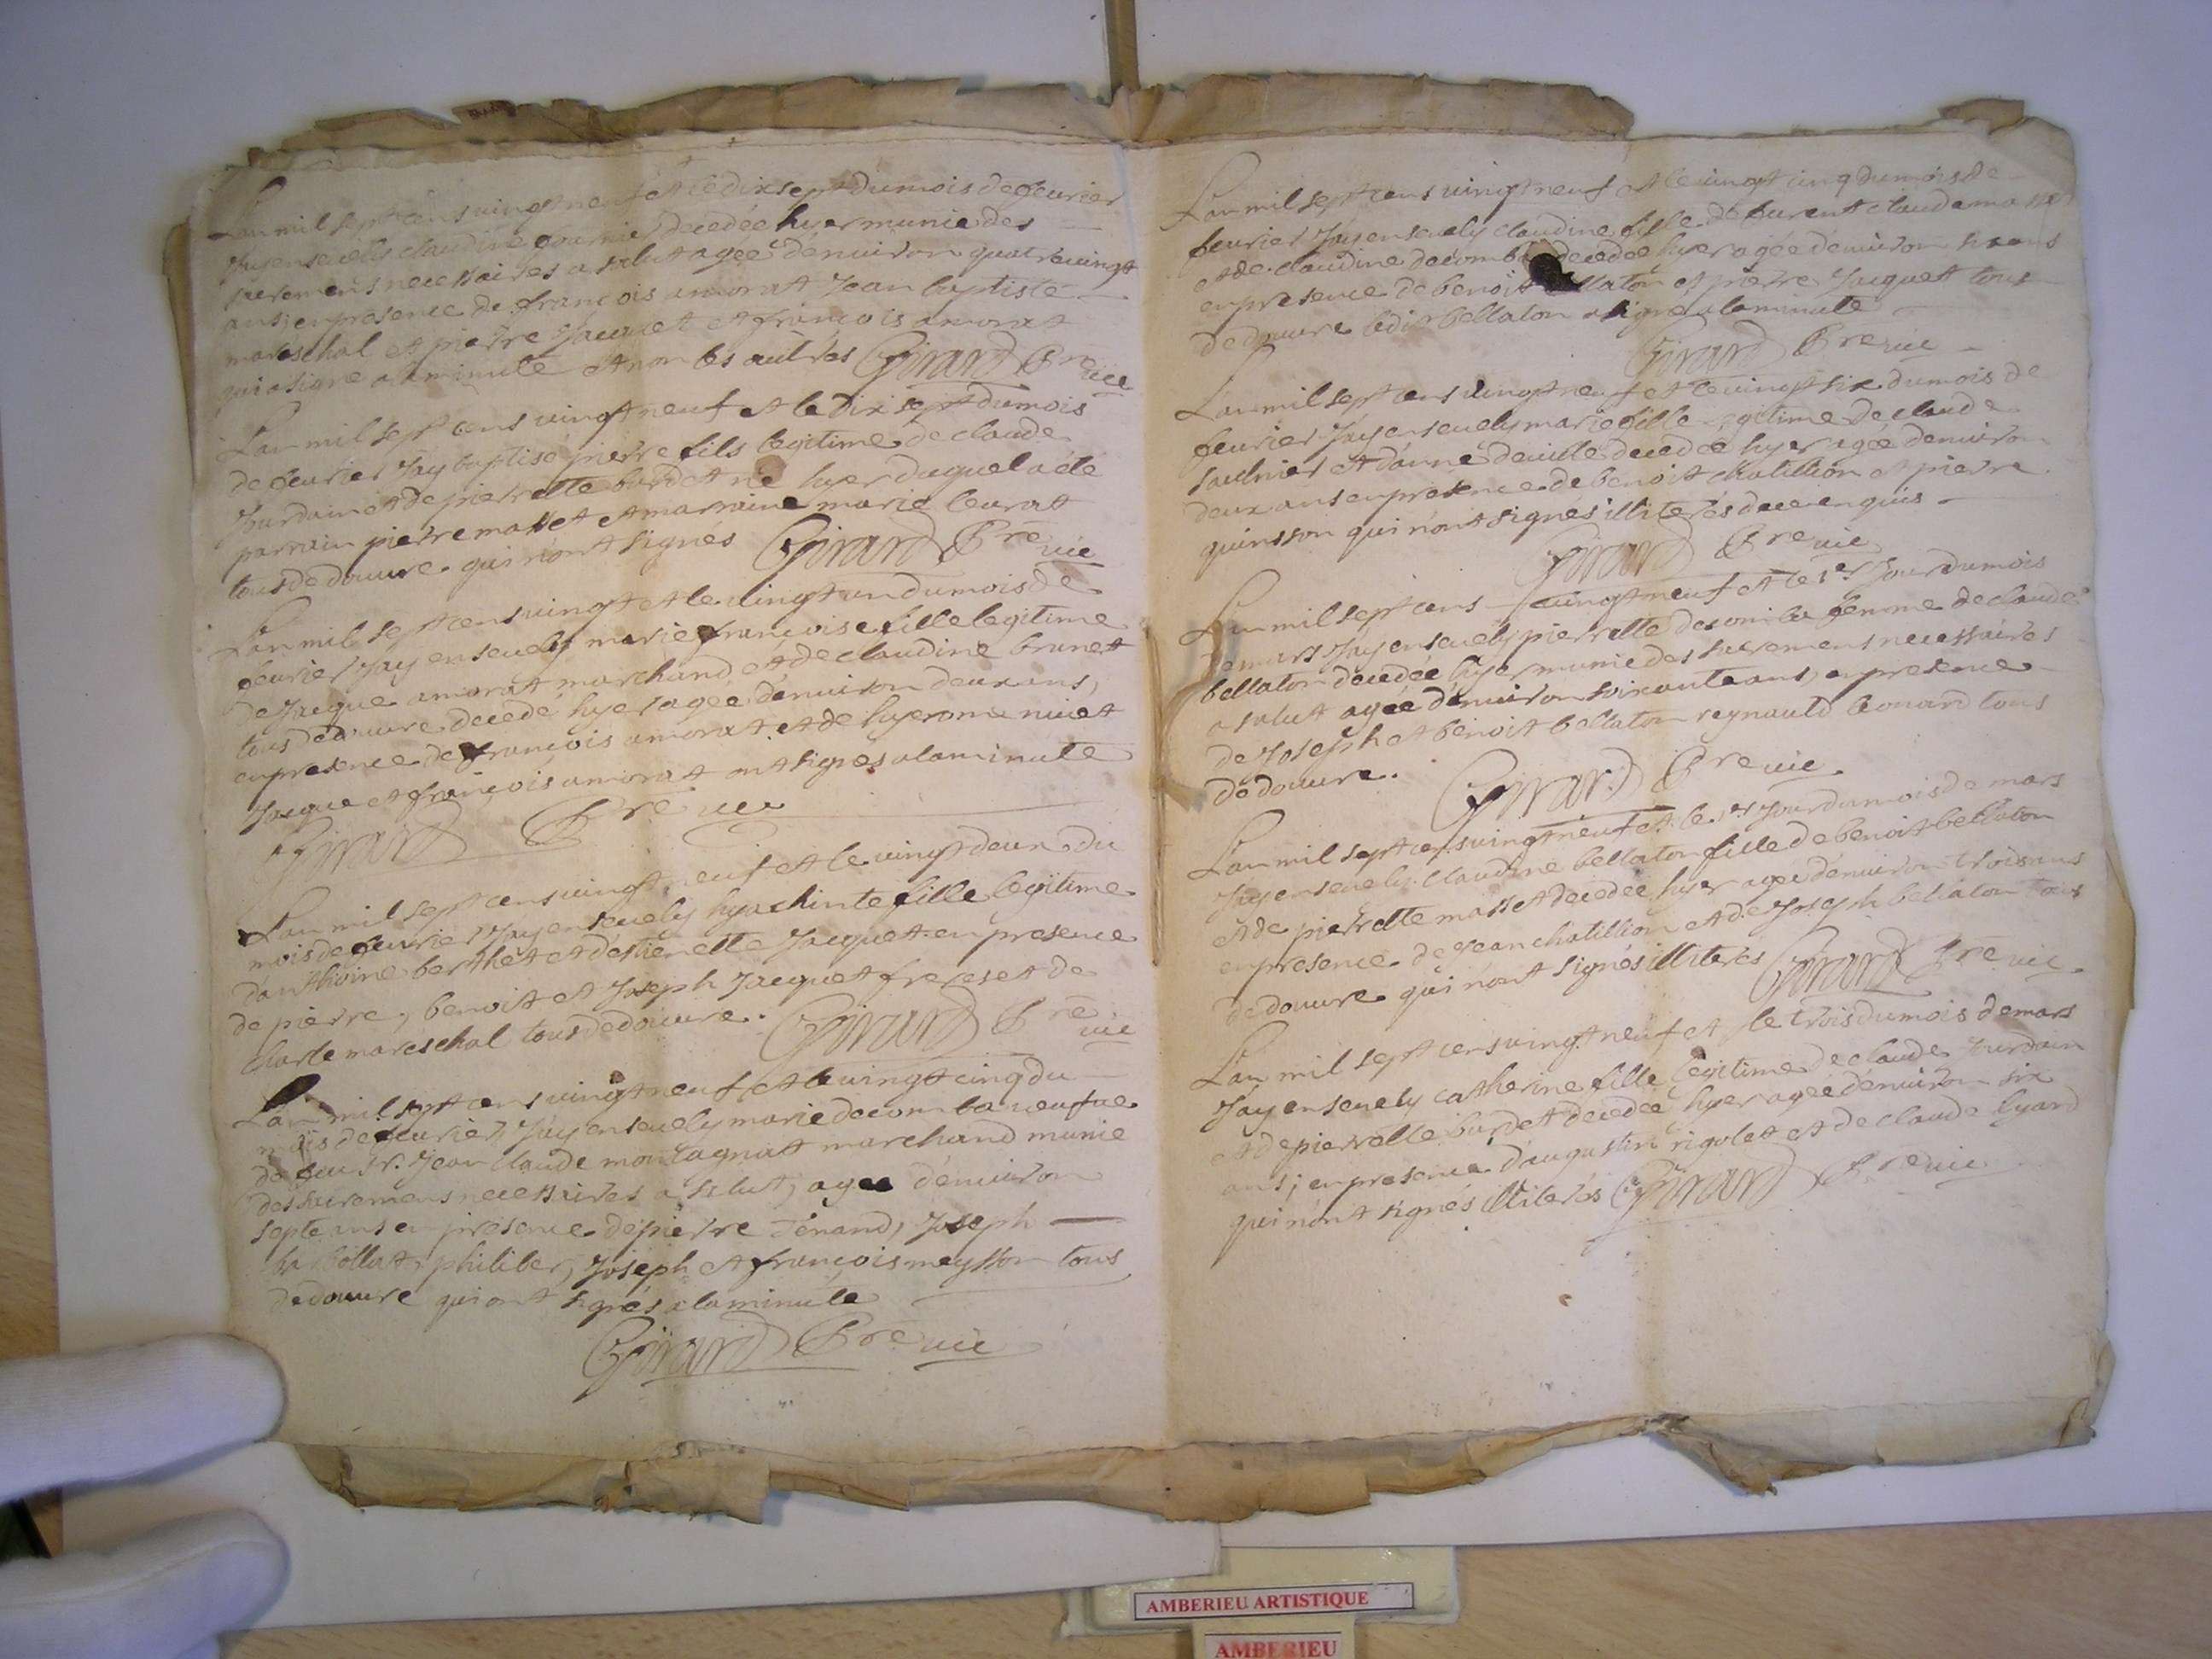 Lan mil sept cens vingt neuf et le dix sept du mois de feurier
Jay enseuely claudine gournier decedée hyer munie des
sacremens necessaires a salut agée denuiron quatre vingt
ans, en presence de françois amorat Jean baptiste
mareschal et pierre Jacquet et françois amorat
qui a signe a la minute et non les autres Girard Pre vic
Lan mil sept cens vingt neuf et le dix sept du mois
de feurier Jay baptisé pierre fils legitime de claude
Jourdain et de pierrette burdet né hyer duquel a été
parrain pierre masset et marraine marie leurat
tous de douure qui n'ont signés Girard Pre vic
Lan mil sept cens vingt et le vingt un du mois de
feurier Jay enseuely marie françoise fille legitime
de Jacque amorat marchand et de claudine brunet
tous de douure decedé hyer agée denuiron deux ans,
en presence de françois amorat et de hyerome niuet
Jacque et françois amorat ont signés a la minute
Girard Pre vic
Lan mil sept cens vingt neuf et le vingt deux du
mois de feurier Jay enseuely hyachinte fille legitime
d'anthoine berthet et destienette Jacquet en presence
de pierre, benoit et Joseph Jacquet freres et de
charle mareschal tous de douure. Girard Pre vic
Lan mil sept cens vingt neuf et le vingt cinq du
mois de feurier, Jay enseuely marie decomba veufue
de feu Sr. Jean claude montagnat marchand munie
des sacremens necessaires a salut, agee denuiron
septe ans en presence de pierre Tenand, Joseph
philiber, Joseph et françois meysson tous
de douure qui ont signés a la minute
Girard Pre vic
Lan mil sept cens vingt neuf et le vingt cinq du mois de
feurier Jay enseuely claudine fille de burent claude masset
et de claudine decomba decedee hyer agée denuiron six ans
en presence de benoit bellaton et pierre Jacquet tous
de douure ledit bellaton a signé a la minute
Girard Pre vic
Lan mil sept cens vingt neuf et le vingt six du mois de
feurier Jay enseuely marie fille legitime de claude
saulnier et d'anne deuille decedée hyer agée denuiron
deux ans en presence de benoit chatillion et pierre
quinsson qui n'ont signés illiterés de ce enquis
Girard Pre vic
Lan mil sept cens vingt neuf et le 1er Jour du mois
de mars Jay enseuely pierrette decomba femme de claude
bellaton decedée hyer munie des sacremens necessaires
a salut agée denuiron soixante ans, en presence
de Joseph et benoit bellaton reynauld leonard tous
de douure. Girard Pre vic
Lan mil sept cens vingt neuf et le 1er Jour du mois de mars
Jay enseuely claudine bellaton fille de benoit bellaton
et de pierrette masset decedée hyer agée denuiron trois ans
en presence de Jean chatillion et de Joseph bellaton tous
de douure qui n'ont signés illiterés Girard Pre vic
Lan mil sept cens vingt neuf et le trois du mois de mars
Jay enseuely catherine fille legitime de claude Jourdain
et de pierrette burdet decedée hyer agée denuiron six
ans; en presence d'augustin rigolet et de claude lyard
qui n'ont signés illiterés Girard Pre vic
AMBERIEU ARTISTIQUE
AMBERIEU